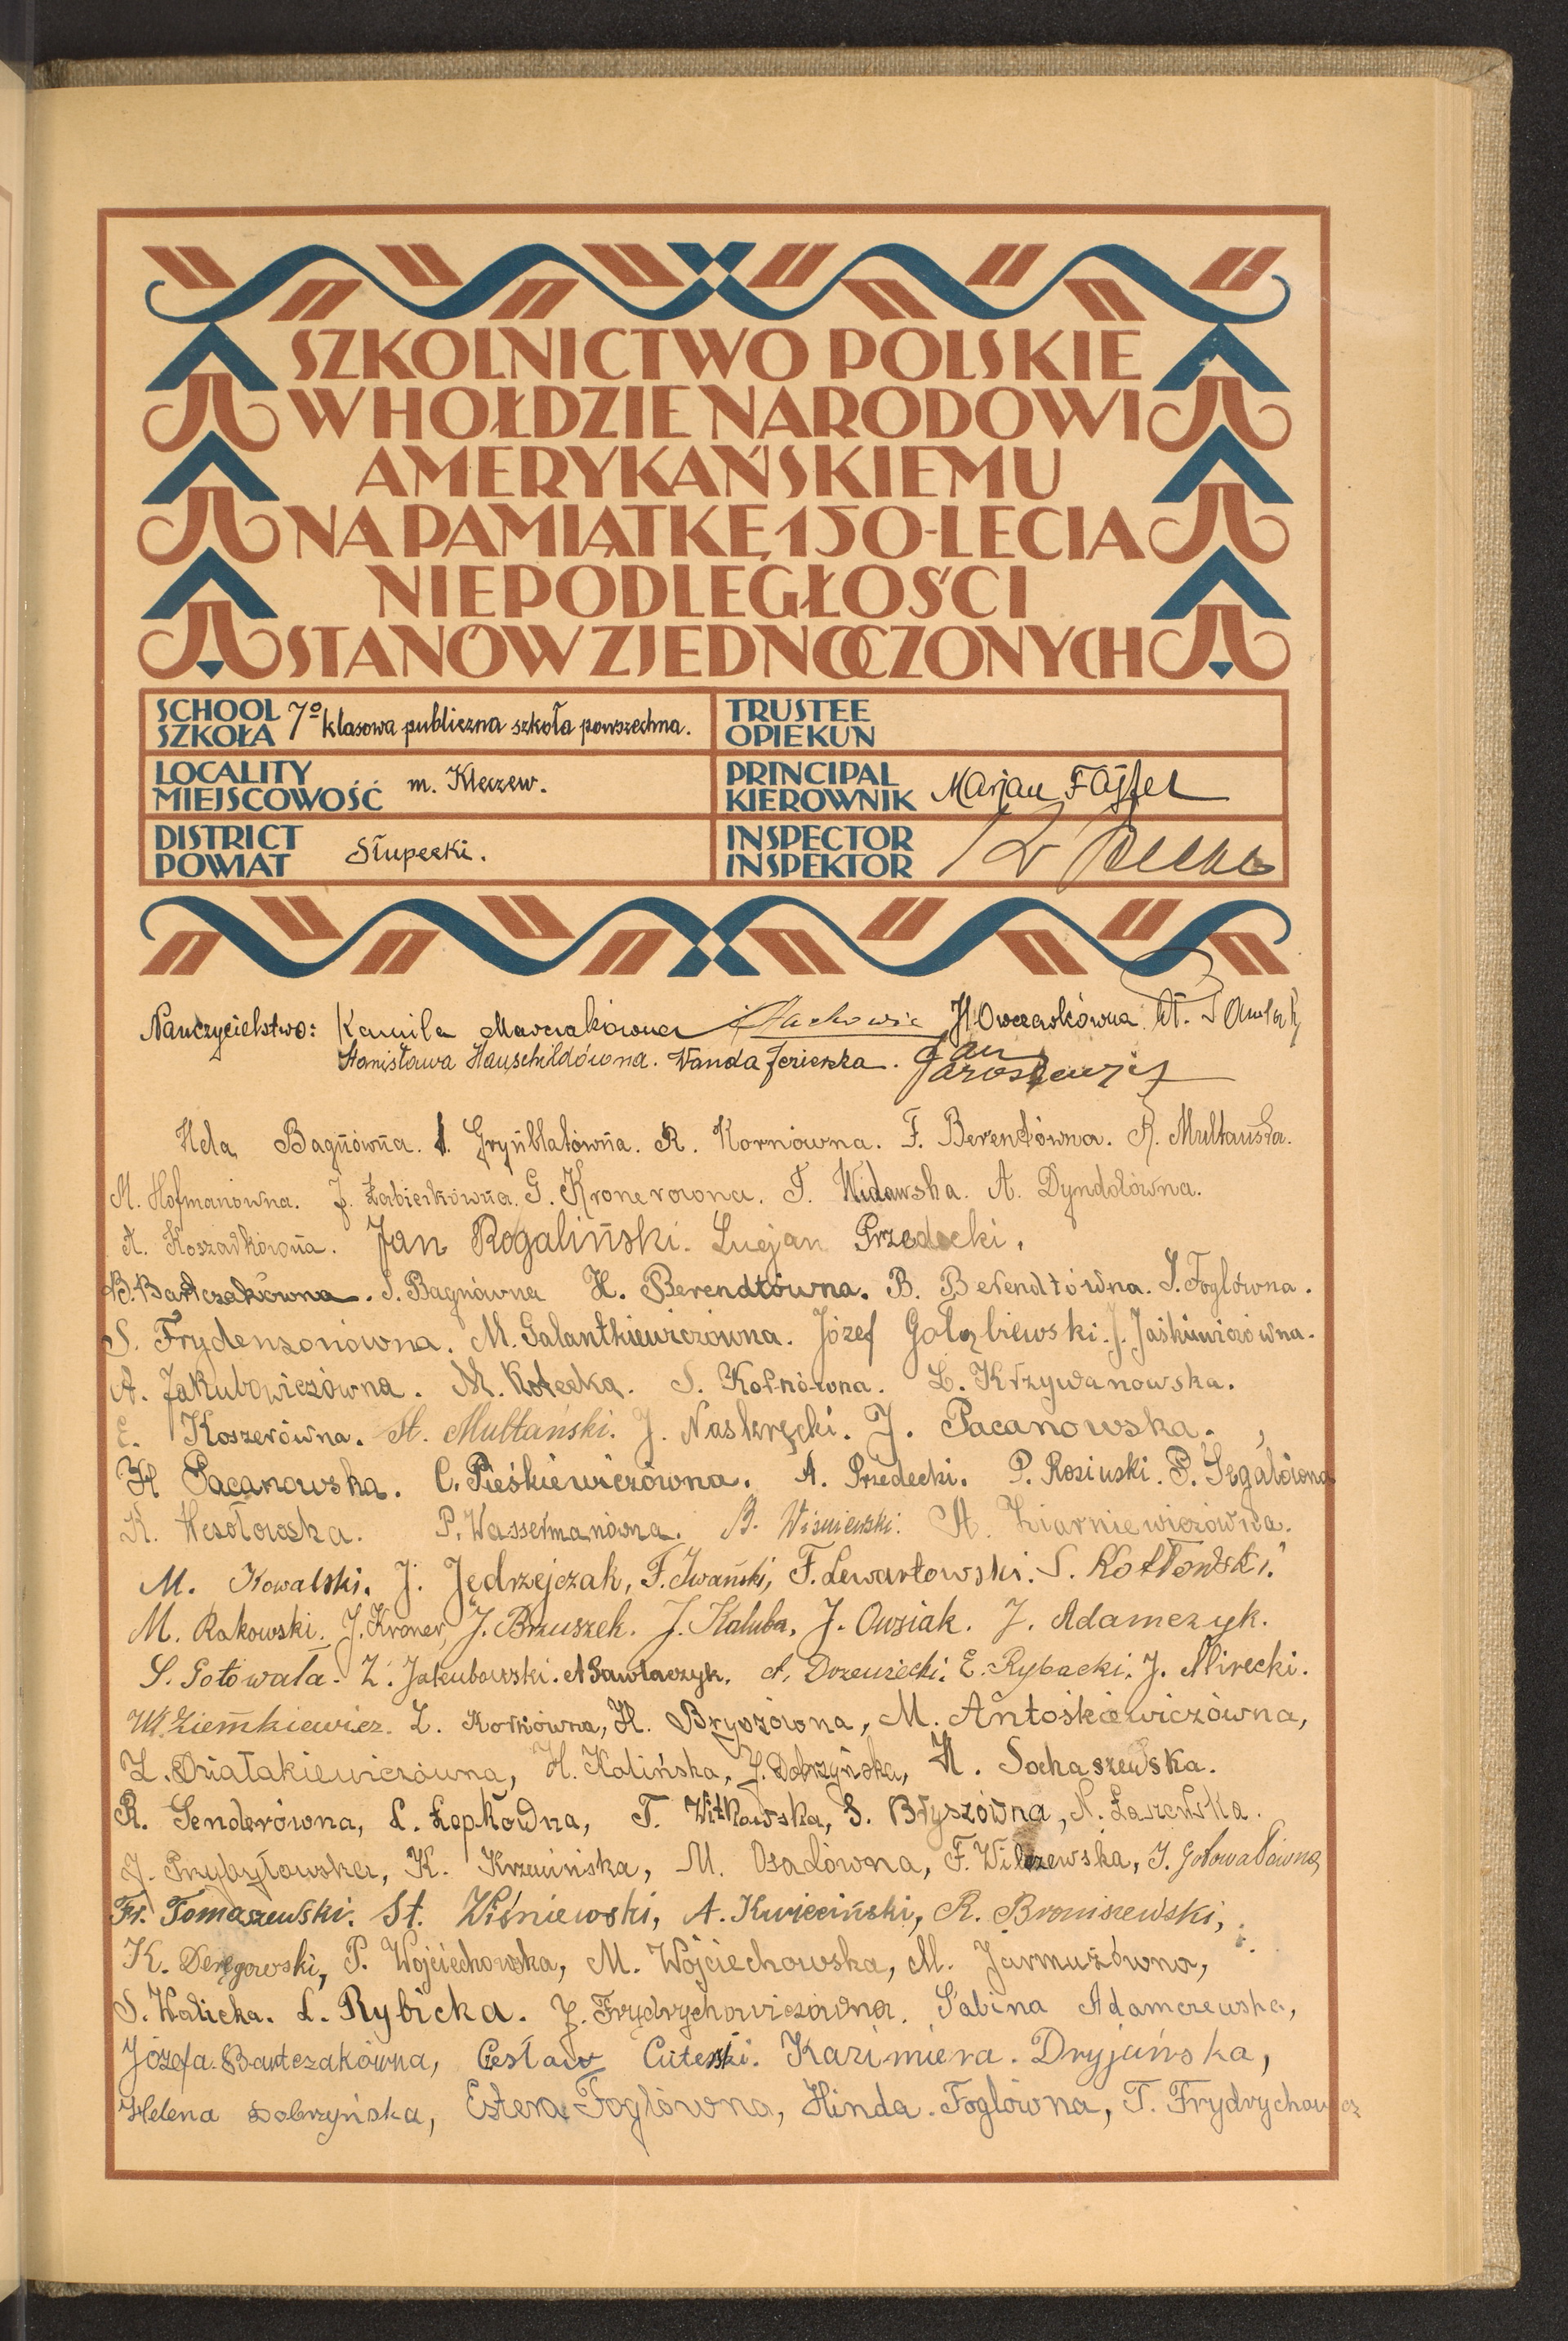 SZKOLNICTWO POLSKIE
W HOŁDZIE NARODOWI
AMERYKAŃSKIEMU
NA PAMIĄTKĘ 150-LECIA
NIEPODLEGŁOŚCI
STANÓW ZJEDNOCZONYCH
SCHOOL SZKOŁA 7º klasowa publiczna szkoła powszechna.
TRUSTEE OPIEKUN
LOCALITY MIEJSCOWOŚĆ m. Kleczew.
PRINCIPAL KIEROWNIK Marjan Fajfer
DISTRICT POWIAT Słupecki.
INSPECTOR INSPEKTOR
Nauczycielstwo: Kamila Marciakówna H. Owczarkówna St.
Stanisława Hauschildówna. Wanda Jezierska. Jan Jarosiewicz
Hela Bagnówna. Grynblatówna. R. Kornówna. F. Berentówna. R. Multańska.
M. Hofmanówna. J. Żabierkówna. G. Kronerowna. T. Widawska. A. Dyndołówna.
A. Koszadkówna. Jan Rogaliński. Lucjan Przedecki.
B. Bartczakówna. S. Bagnówna H. Berendtówna. B. Berendtówna. I. Foglówna.
S. Frydensonówna. M. Galantkiewiczówna. Józef Gołąbiewski. J. Jaśkiewiczówna.
A. Jakubowiczówna. M. Kotecka. S. Kornówna. L. Krzywanowska.
E. Koszerówna. St. Multański. J. Naskręcki. J. Pacanowska.
H Pacanowska. C. Pieśkiewiczówna. A. Przedecki. P. Rosinski. P. Segałówna
K. Wesołowska. P. Wassermanówna. B. Wisniewski. A. Ziarniewiczówna.
M. Kowalski. J. Jędrzejczak, F. Iwański, F. Lewartowski. S. Kotłowski.
M. Rakowski. J. Kroner, J. Brzuszek. J. Kałuba, J. Owsiak. J. Adamczyk.
S. Gotowała. Z. Jakubowski. A Pawlaczyk. A. Drzewiecki. E. Rybacki. J. Mirecki.
Wł. Ziemkiewicz. Z. Kornówna, H. Bryszówna, M. Antośkiewiczówna,
Z. Działakiewiczówna, H. Kalińska, J. Dobrzyńska, H. Sochaszewska.
R. Senderówna, L. Łepkowna, T. Witkowska, S. Bryszówna, N. Łaszewska.
J. Przybyłowska, K. Krzewińska, M. Osadówna, F. Wilczewska, I. Gotowałówna,
Fr. Tomaszewski. St. Wiśniewski, A. Kwieciński, R. Broniszewski,
K. Deręgowski, P. Wojciechowska, M. Wojciechowska, M. Jarmużówna,
S. Walicka. L. Rybicka. J. Frydrychowiczówna. Sabina Adamczewska,
Józefa Bartczakówna, Czesław Kazimiera Dryjańska,
Helena Dobrzyńska, Estera Foglówna, Hinda Foglówna, T. Frydrychowicz